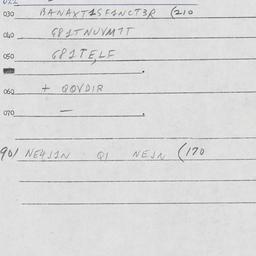 030 BANAXT1SF1NCT3R (210
040 G81TNUVM7T
050 G81TELF
060 + QQVDIR
070 —
901 NE4J1N QI NEJN (170